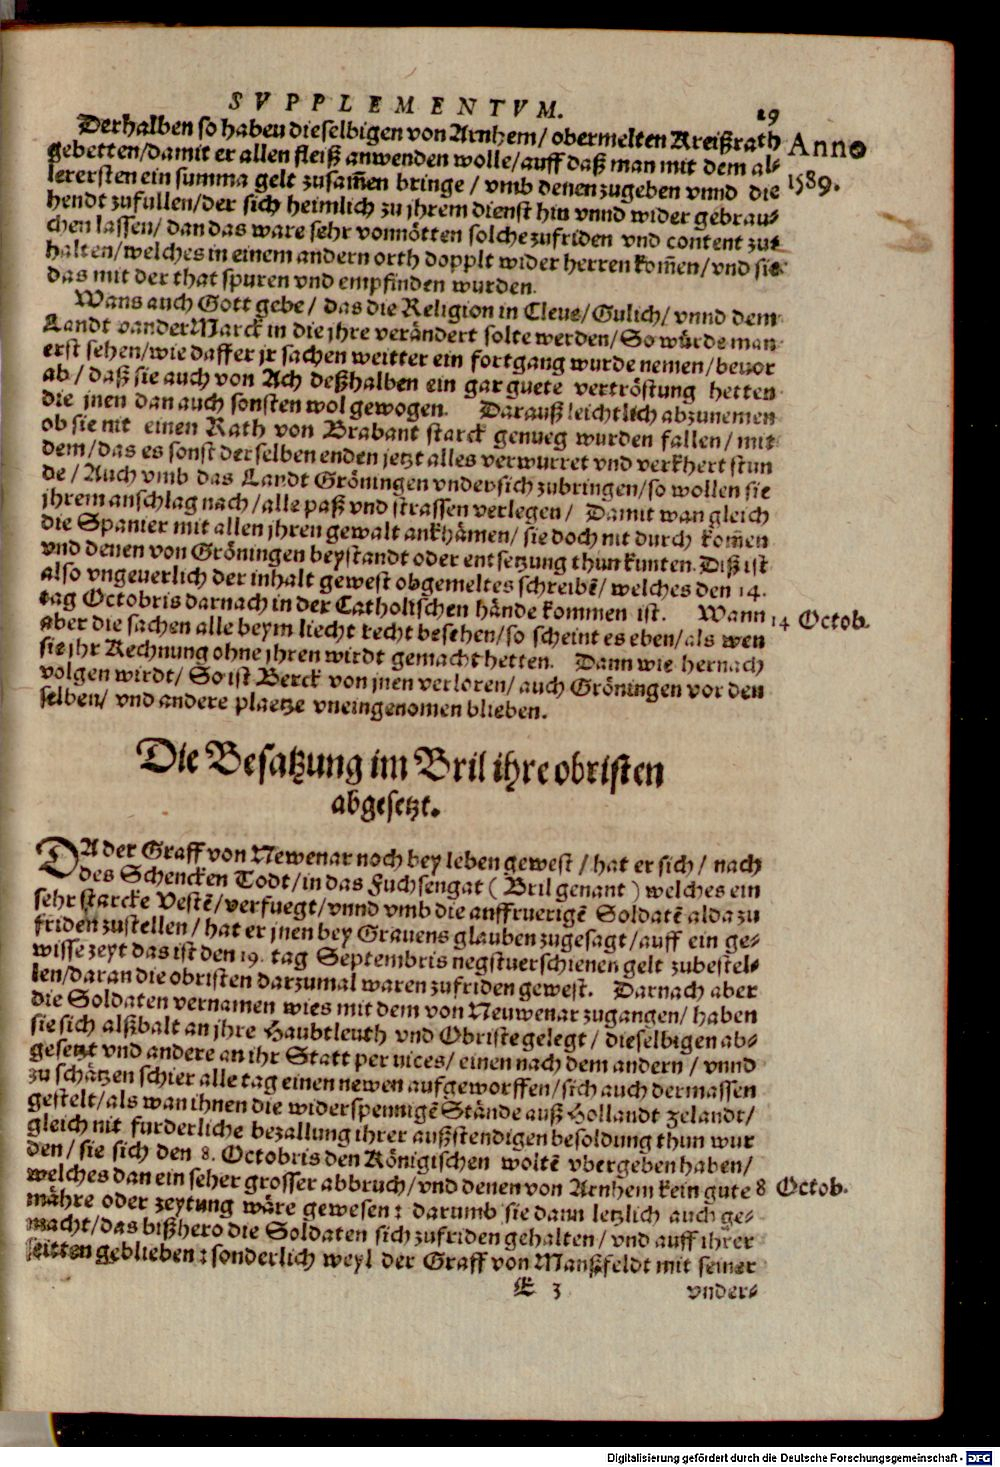 SVPPLEMENTVM. 19
Derhalben so haben dieselbigen von Arnhem/ obermelten Kreißrath
Anno
gebetten/damit er allen fleiß anwenden wolle/auff daß man mit dem al-
1589.
lerersten ein summa gelt zusam̃en bringe / vmb denen zugeben vnnd die
hendt zufullen/der sich heimlich zu jhrem dienst hin vnnd wider gebrau-
chen lassen/ dan das ware sehr vonnötten solche zufriden vnd content zu-
halten/welches in einem andern orth dopplt wider herren kom̃en/vnd sie
das mit der that spuren vnd empfinden wurden.
Wans auch Gott gebe/ das die Religion in Cleve/Gulich/ vnnd dem
Landt vander Marck in die jhre verändert solte werden/So würde man
erst sehen/wie daffer jr sachen weitter ein fortgang wurde nemen/bevor
ab/ daß sie auch von Ach deßhalben ein gar guete vertröstung hetten
die jnen dan auch sonsten wol gewogen. Darauß leichtlich abzunemen
ob sie nit einen Rath von Brabant starck genueg wurden fallen/ mit
dem/das es sonst derselben enden jetzt alles verwurret vnd verkhert stun
de/ Auch vmb das Landt Gröningen vnder sich zubringen/so wollen sie
jhrem anschlag nach/alle paß vnd strassen verlegen/ Damit wan gleich
die Spanier mit allen jhren gewalt ankhämen/ sie doch nit durch kom̃en
vnd denen von Gröningen beystandt oder entsetzung thun kunten. Diß ist
also vngeverlich der inhalt gewest obgemeltes schreibē/ welches den 14.
tag Octobris darnach in der Catholischen hände kommen ist. Wann
14 Octob.
aber die sachen alle beym liecht recht besehen/so scheint es eben/als wen
sie jhr Rechnung ohne jhren wirdt gemacht hetten. Dann wie hernach
volgen wirdt/ So ist Berck von jnen verloren/ auch Gröningen vor den
selben/ vnd andere plaetze vneingenomen blieben.
Die Besatzung im Bril ihre obristen
abgesetzt.
DA der Graff von Newenar noch bey leben gewest / hat er sich / nach
des Schencken Todt/in das Fuchsengat ( Bril genant ) welches ein
sehr starcke Vestē/verfuegt/vnnd vmb die auffruerigē Soldatē alda zu
friden zustellen/ hat er jnen bey Gravens glauben zugesagt/auff ein ge-
wisse zeyt das ist den 19. tag Septembris negstverschienen gelt zubestel-
len/daran die obristen darzumal waren zufriden gewest. Darnach aber
die Soldaten vernamen wies mit dem von Neuwenar zugangen/ haben
sie sich alßbalt an jhre Haubtleuth vnd Obriste gelegt/ dieselbigen ab-
gesetzt vnd andere an ihr Statt per vices/ einen nach dem andern / vnnd
zu schätzen schier alle tag einen newen aufgeworffen/sich auch dermassen
gestelt/als wan ihnen die widerspennigē Stände auß Hollandt Zelandt/
gleich nit furderliche bezallung ihrer außstendigen besoldung thun wur
den/ sie sich den 8. Octobris den Königischen woltē vbergeben haben/
welches dan ein seher grosser abbruch/vnd denen von Arnhem kein gute
8 Octob.
mähre oder zeytung wäre gewesen: darumb sie dann letzlich auch ge-
macht/das bißhero die Soldaten sich zufriden gehalten/ vnd auff ihrer
seitten geblieben: sonderlich weyl der Graff von Manßfeldt mit seiner
E 3 vnder-
Digitalisierung gefördert durch die Deutsche Forschungsgemeinschaft - DFG